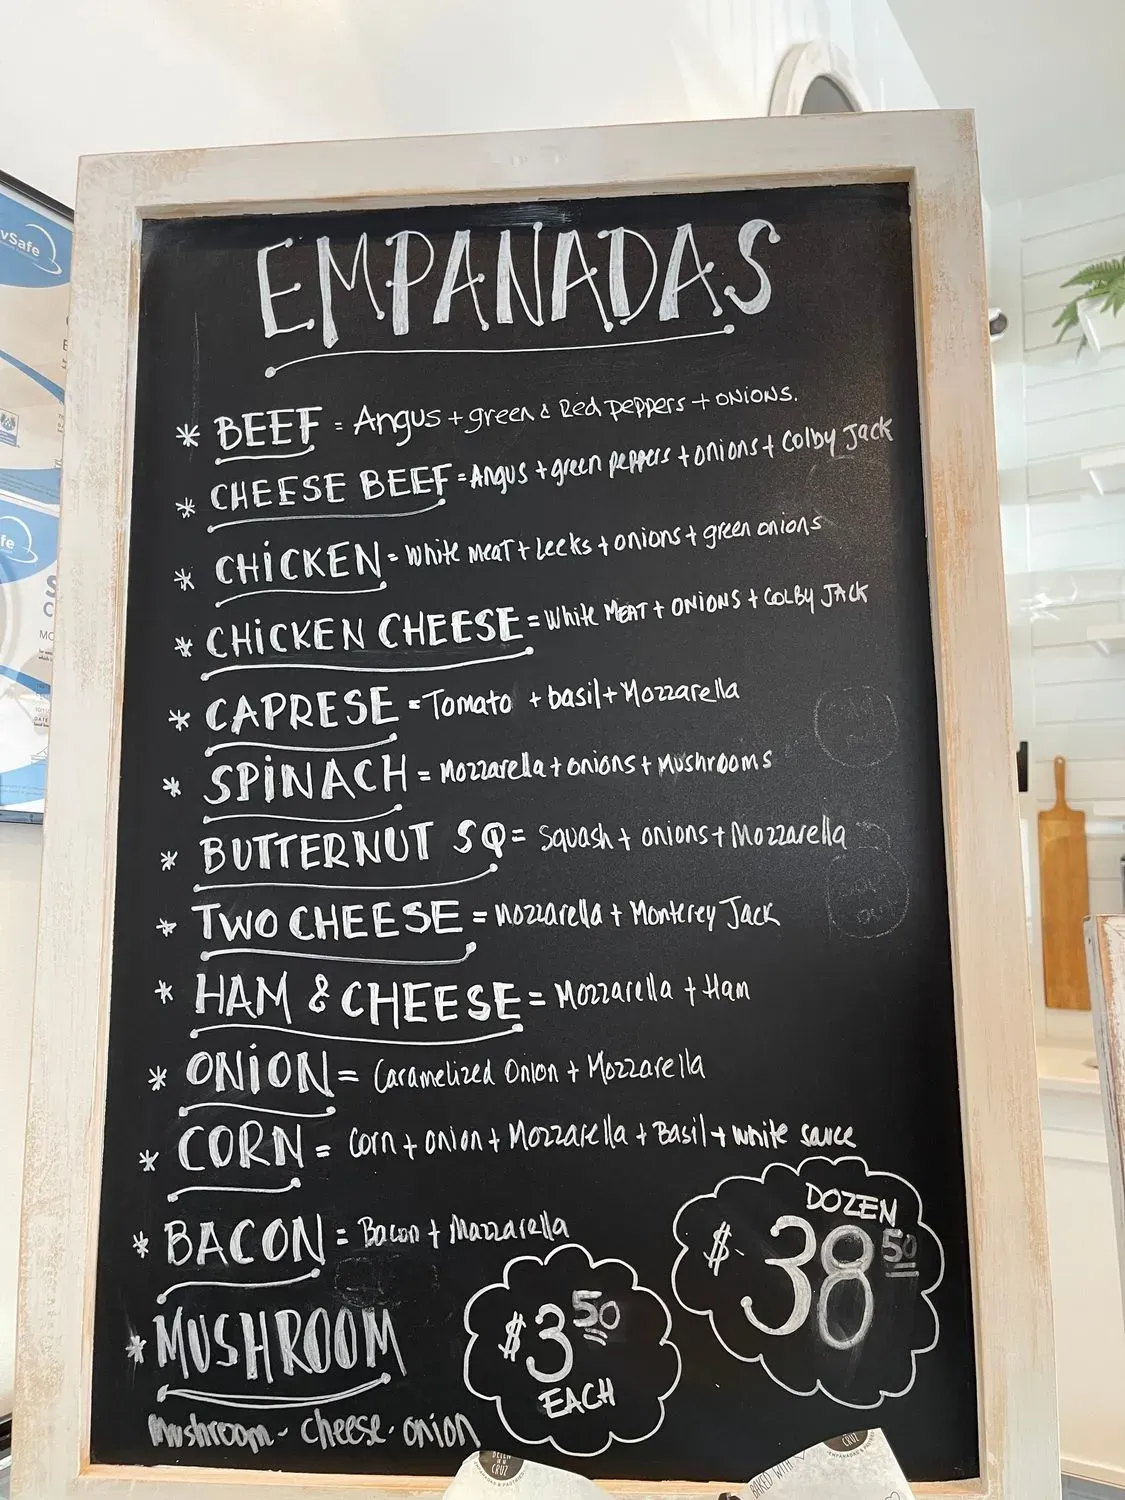 EMPANADAS
* BEEF = Angus + green & Red peppers + ONIONS.
* CHEESE BEEF = Angus + green peppers + onions + Colby Jack
* CHiCKEN = White meat + Leeks + onions + green onions
* CHiCKEN CHEESE = White MEAT + ONIONS + COLBY JACK
* CAPRESE = Tomato + basil + Mozzarella
* SPiNACH = Mozzarella + onions + Mushrooms
* BUTTERNUT SQ = Squash + onions + Mozzarella
* TWO CHEESE = Mozzarella + Monterey Jack
* HAM & CHEESE = Mozzarella + Ham
* ONiON = Caramelized Onion + Mozzarella
* CORN = Corn + onion + Mozzarella + Basil + white sauce
* BACON = Bacon + Mazzarella
DOZEN
$38 50
* MUSHROOM
$3 50
EACH
Mushroom - cheese - onion
vSafe
fe
CRUZ
CRUZ
BAKED WITH